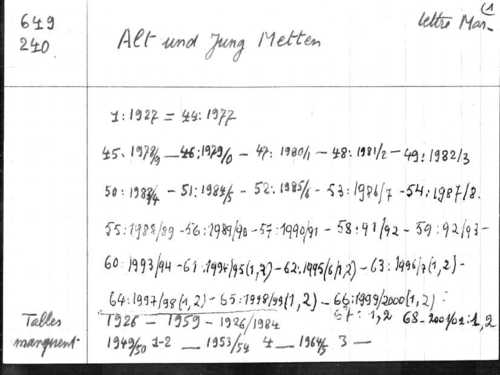 649
240
Alt und Jung Metten
(1
lettre Mar-
1:1927 = 44:1977
45.1978/9 — 46:1979/0 — 47: 1980/1 — 48:1981/2 — 49:1982/3
50:1983/4 — 51:1984/5 — 52:1985/6 — 53:1986/7 — 54:1987/8.
55:1988/89 - 56:1989/90 - 57:1990/91 - 58:91/92 - 59:92/93 -
60:1993/94 - 61:1994/95(1,2) - 62:1995/6(1,2) - 63:1996/7(1,2) -
64:1997/98(1,2) - 65:1998/99(1,2) - 66:1999/2000(1,2):
67: 1,2 68-2000/01:1,2
Talles
manquent
1926 — 1959 — 1926/1984
1949/50 1-2 — 1953/54 4 — 1964/5 3 —